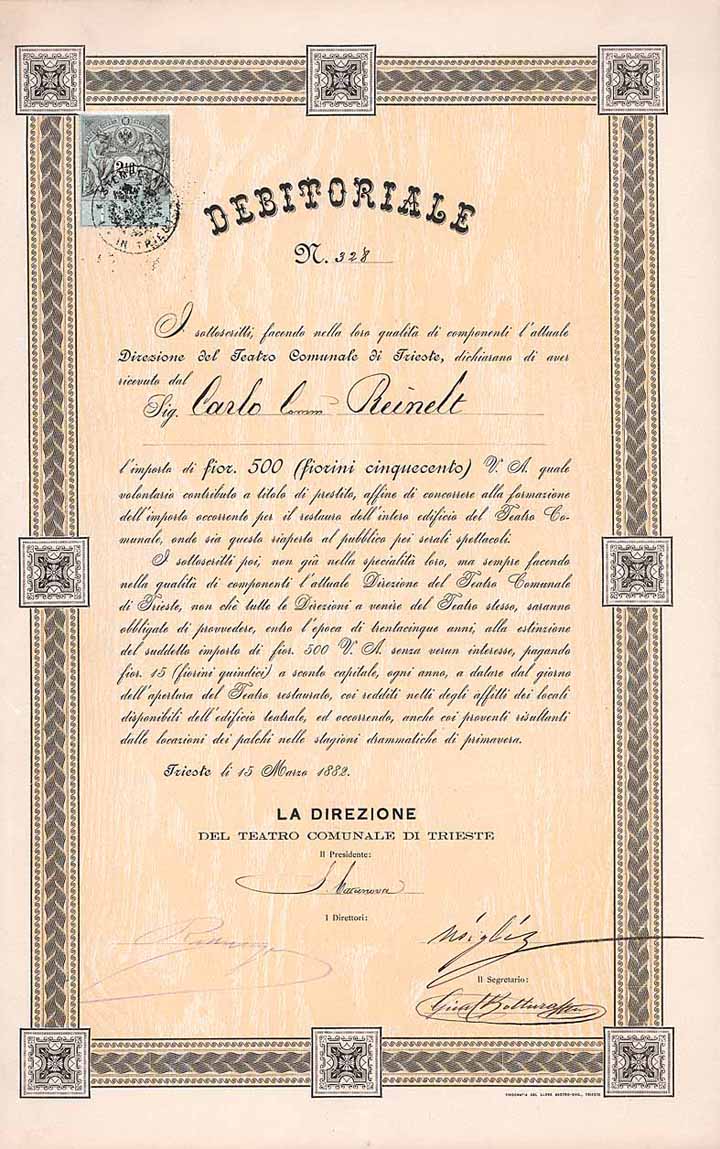 DEBITORIALE
N. 328
I sottoscritti, facendo nella loro qualità di componenti l'attuale
Direzione del Teatro Comunale di Trieste, dichiarano di aver
ricevuto dal
Sig. Carlo Comm Reinelt
l'importo di fior. 500 (fiorini cinquecento) V. A. quale
volontario contributo a titolo di prestito, affine di concorrere alla formazione
dell'importo occorrente per il restauro dell'intero edificio del Teatro Co-
munale, onde sia questo riaperto al pubblico pei serali spettacoli.
I sottoscritti poi, non già nella specialità loro, ma sempre facendo
nella qualità di componenti l'attuale Direzione del Teatro Comunale
di Trieste, non chè tutte le Direzioni a venire del Teatro stesso, saranno
obbligate di provvedere, entro l'epoca di trentacinque anni, alla estinzione
del suddetto importo di fior. 500 V. A. senza verun interesse, pagando
fior. 15 (fiorini quindici) a sconto capitale, ogni anno, a datare dal giorno
dell'apertura del Teatro restaurato, coi redditi netti degli affitti dei locali
disponibili dell'edificio teatrale, ed occorrendo, anche coi proventi risultanti
dalle locazioni dei palchi nelle stagioni drammatiche di primavera.
Trieste li 15 Marzo 1882.
LA DIREZIONE
DEL TEATRO COMUNALE DI TRIESTE
Il Presidente:
I Direttori:
Il Segretario:
TIPOGRAFIA DEL LLOYD AUSTRO-UNG., TRIESTE